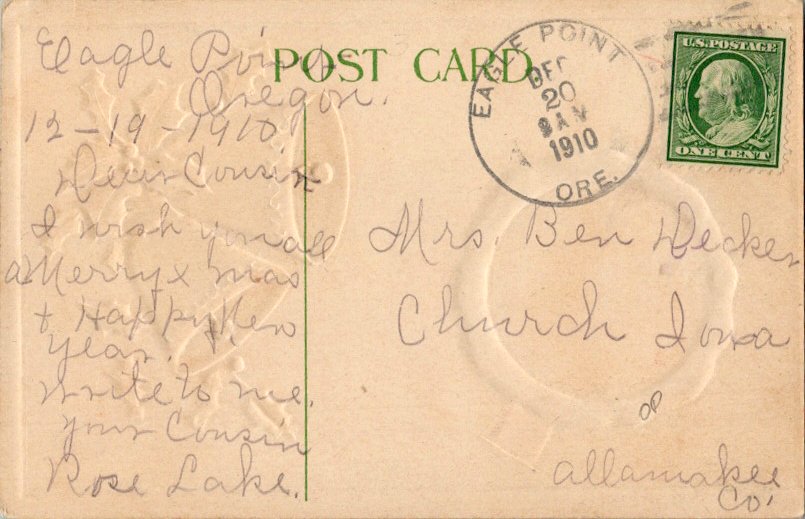 Eagle Point
Oregon.
12-19-1910
Dear Cousin
I wish you all
a Merry x mas
& Happy New
Year.
write to me.
your Cousin
Rose Lake.
POST CARD
EAGLE POINT
DEC
20
9 AM
1910
ORE.
U.S. POSTAGE
ONE CENT
Mrs. Ben Decker
Church Iowa
OP
allamakee
Co.